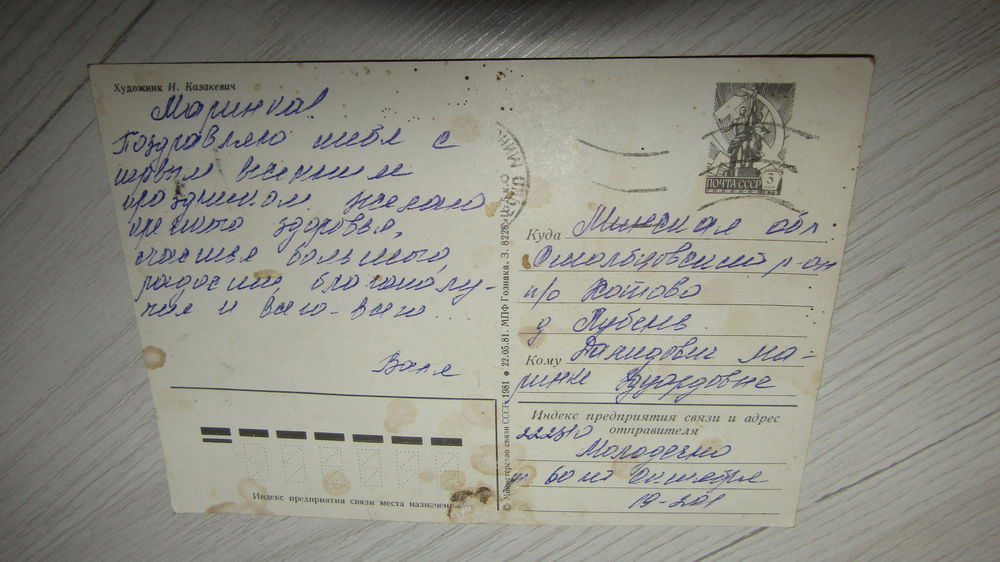 Художник И. Казакевич
Маринка!
Поздравляю тебя с
первым весенним
праздником желаю
крепкого здоровья,
счастья большого,
радости, благополу-
чия и всего-всего.
Валя
Индекс предприятия связи места назначения
© Министерство связи СССР, 1981 • 22.05.81. МПФ Гознака. З. 8228.
ПОЧТА СССР
Куда Минская обл
р-он
п/о Хотово
д Лубень
Кому Данидович Ма-
ринке Эдуардовне
Индекс предприятия связи и адрес
отправителя
222310
Молодечно
60 лет Октября
19-201